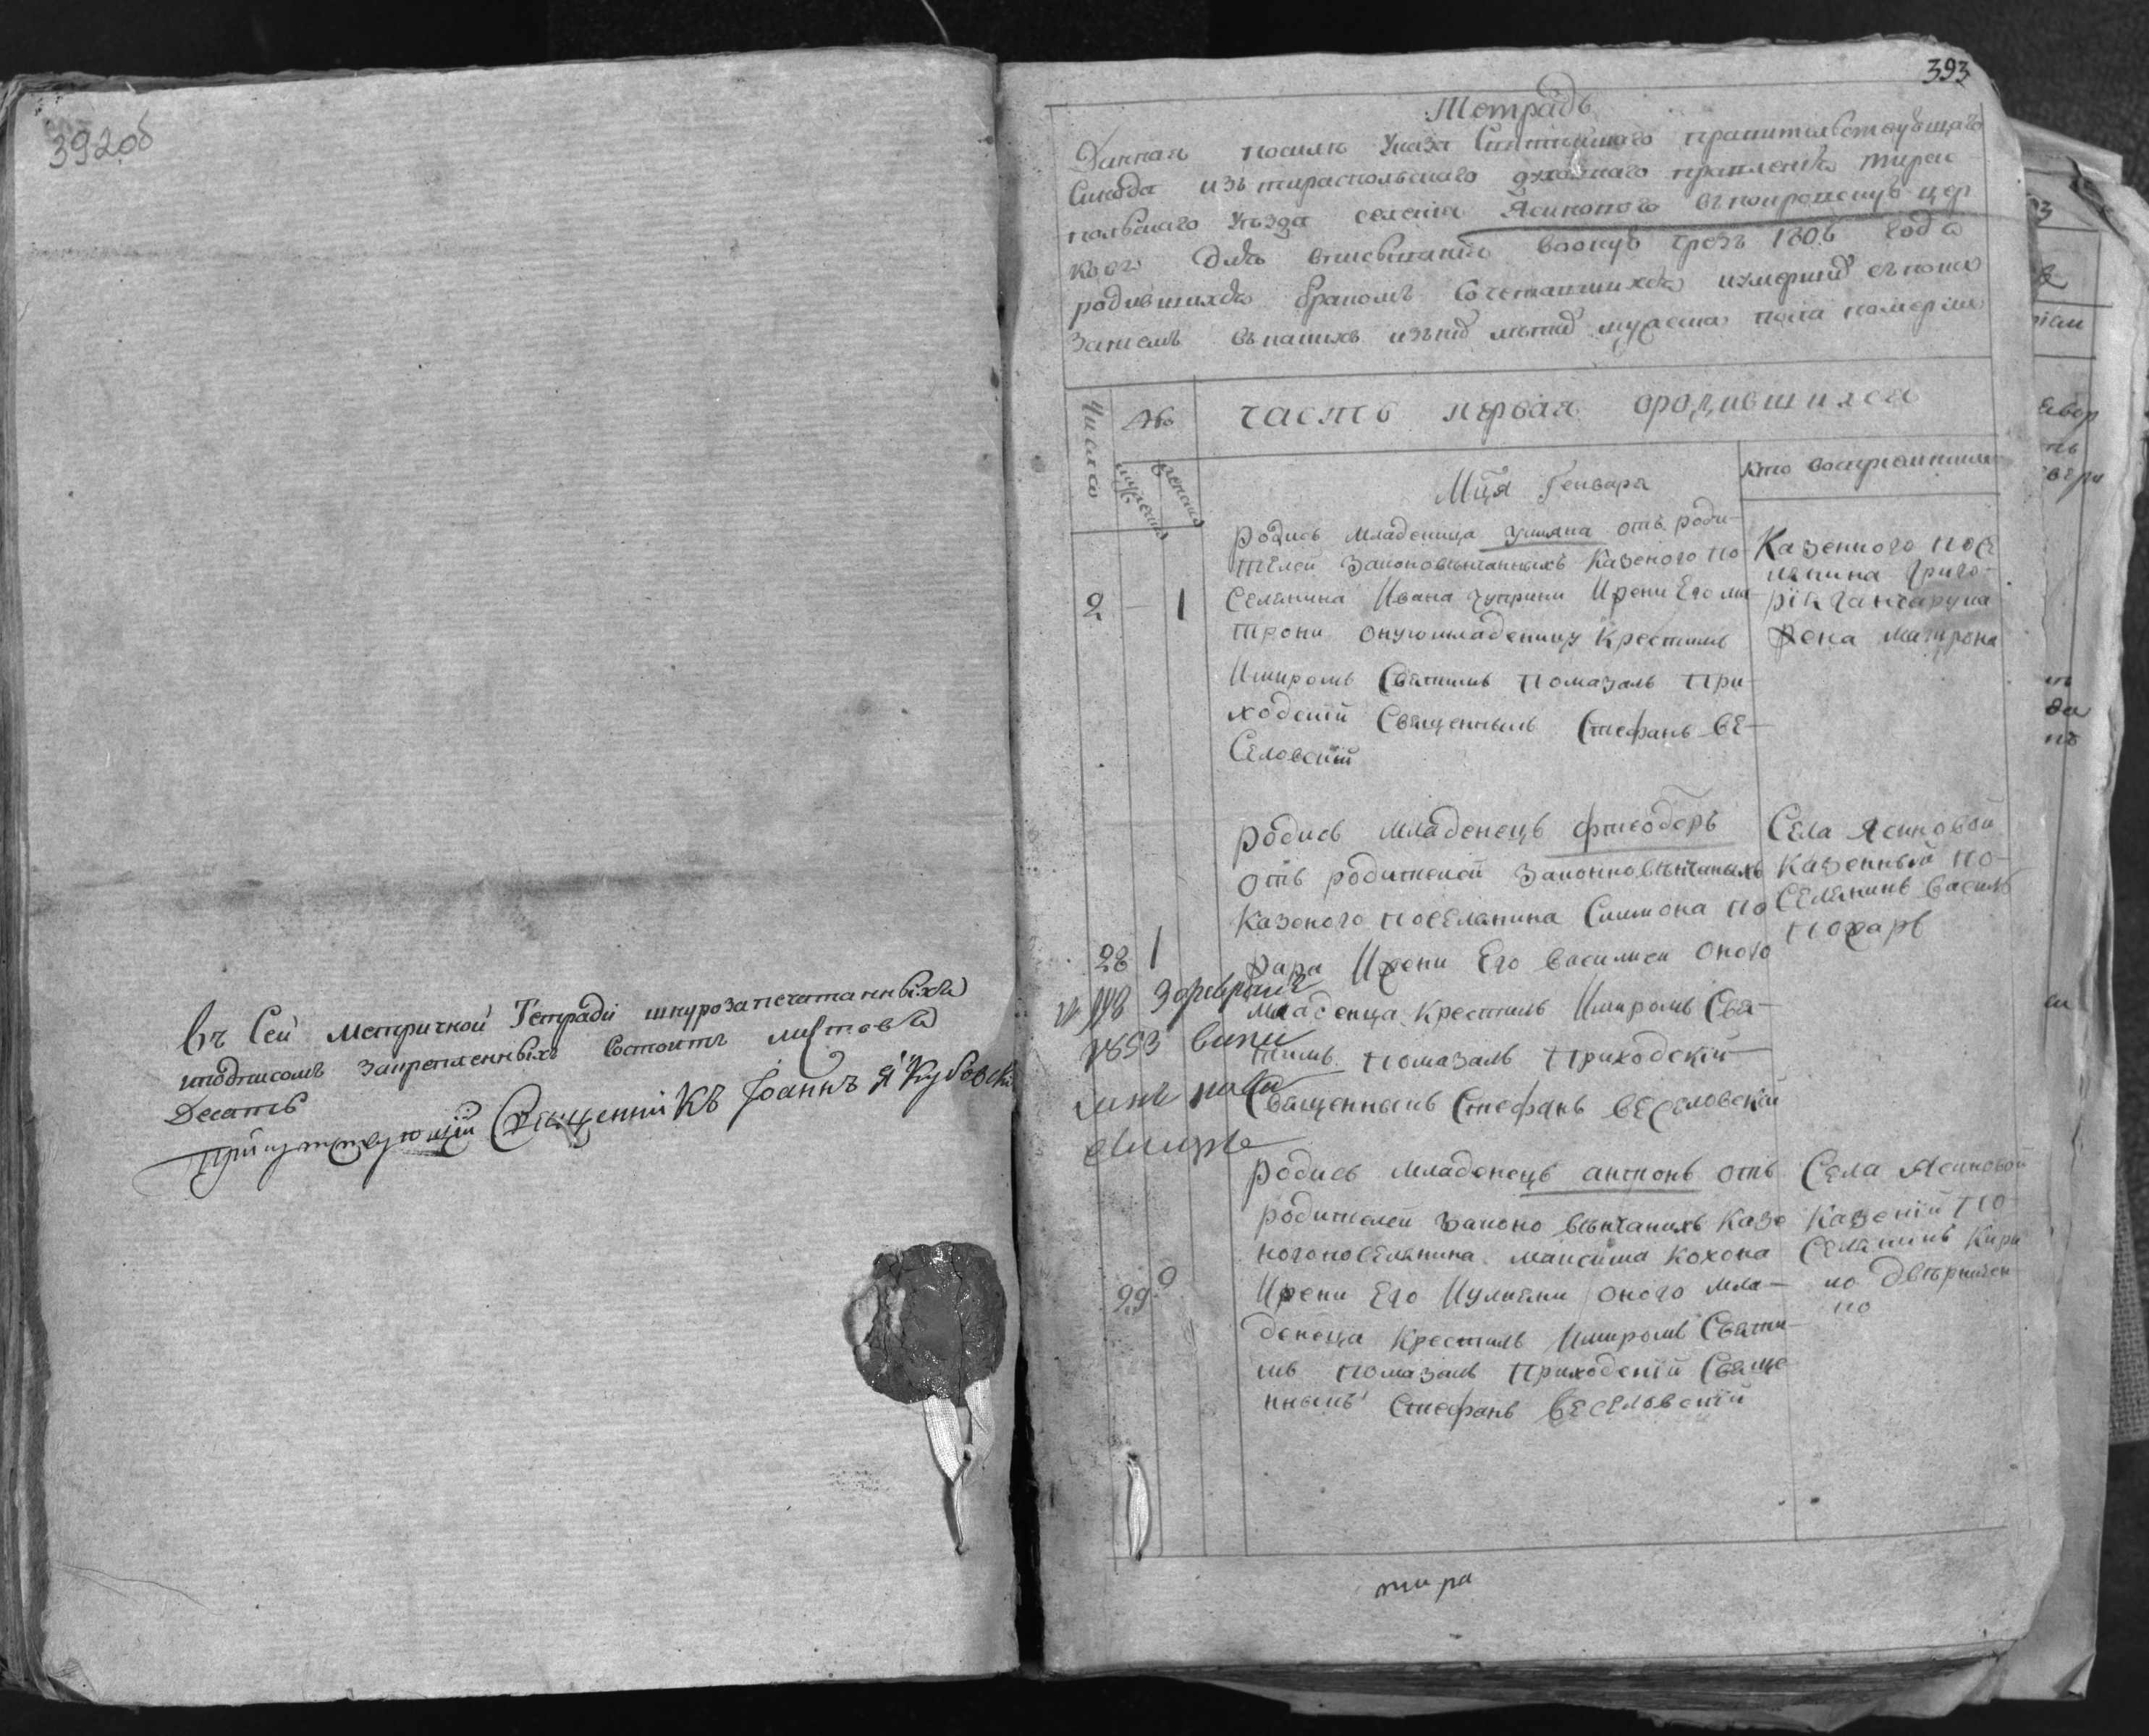 392об
Въ Сей Метричной Тетради шнурозапечатанныхъ
иподписомъ Закрепленныхъ Состоитъ листовъ
Десять
Присутствующій Священникъ Іоаннъ Якубовскі
393
Тетрадь
Данная посилѣ Указа Святѣйшаго правительствующаго
Синода изъ тираспольскаго духовнаго правленія тирас
польскаго Уѣзда селенія Ясинового въпокровскую цер
ковь для вписыванія вооную чрезъ 1806 года
родившихся бракомъ Сочетавшихся иумершихъ
изъ нихъ мужеска пола
Число
№
часть первая ородившихся
мужеска
женска
Мца Генваря
Кто воспреимники
Родись младеница Улияна отъ роди-
телей Законовѣнчанныхъ Казеного по-
2 - 1 Селянина Ивана Чуприни Ижени Его ма
трони оную младеницу Крестилъ
Имиромъ Святимъ помазалъ При-
ходскій Священныкъ Стефанъ Ве-
Селовскій
Казенного посе
лянина Григо-
рія Ганчарука
Жена Матрона
Родись младенецъ Фтеодоръ
отъ родителей Законновѣнчаныхъ
Казеного поселянина Симиона по
28 1 жара Ижени Его Василиси оного
младенца Крестилъ Имиромъ Свя-
тимъ помазалъ Приходскій
Священныкъ Стефанъ Веселовскій
Села Ясиновой
Казенный по-
Селянинъ Василь
пожаръ
3 февраля
1853
Родись младенецъ антонъ отъ
родителей Законо вѣнчанихъ Казе
ногопоселянина максима Кохона
29 Ижени Его Иулияни оного мла-
денеца Крестилъ Имиромъ Святи-
мъ помазалъ Приходскій Свяще
нныкъ Стефанъ Веселовскій
Села Ясиновой
Казеній по
Селянинъ Кири
ло Двѣрничен
ко
тира